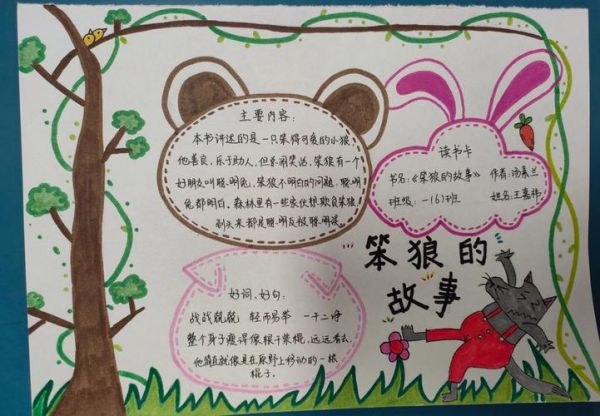 主要内容：
本书讲述的是一只笨得可爱的小狼
他善良、乐于助人，但爱闹笑话，笨狼有一个
好朋友叫聪明兔，笨狼不明白的问题，聪明
兔都明白，森林里有一些家伙想欺负笨狼，
到头来都是聪明反被聪明误。
读书卡
书名：《笨狼的故事》 作者：汤素兰
班级：一(6)班 姓名：王嘉祎
笨狼的
故事
好词、好句：
战战兢兢 轻而易举 一干二净
整个身子瘦得像根干柴棍，远远看去，
他简直就像是在原野上移动的一根
棍子。